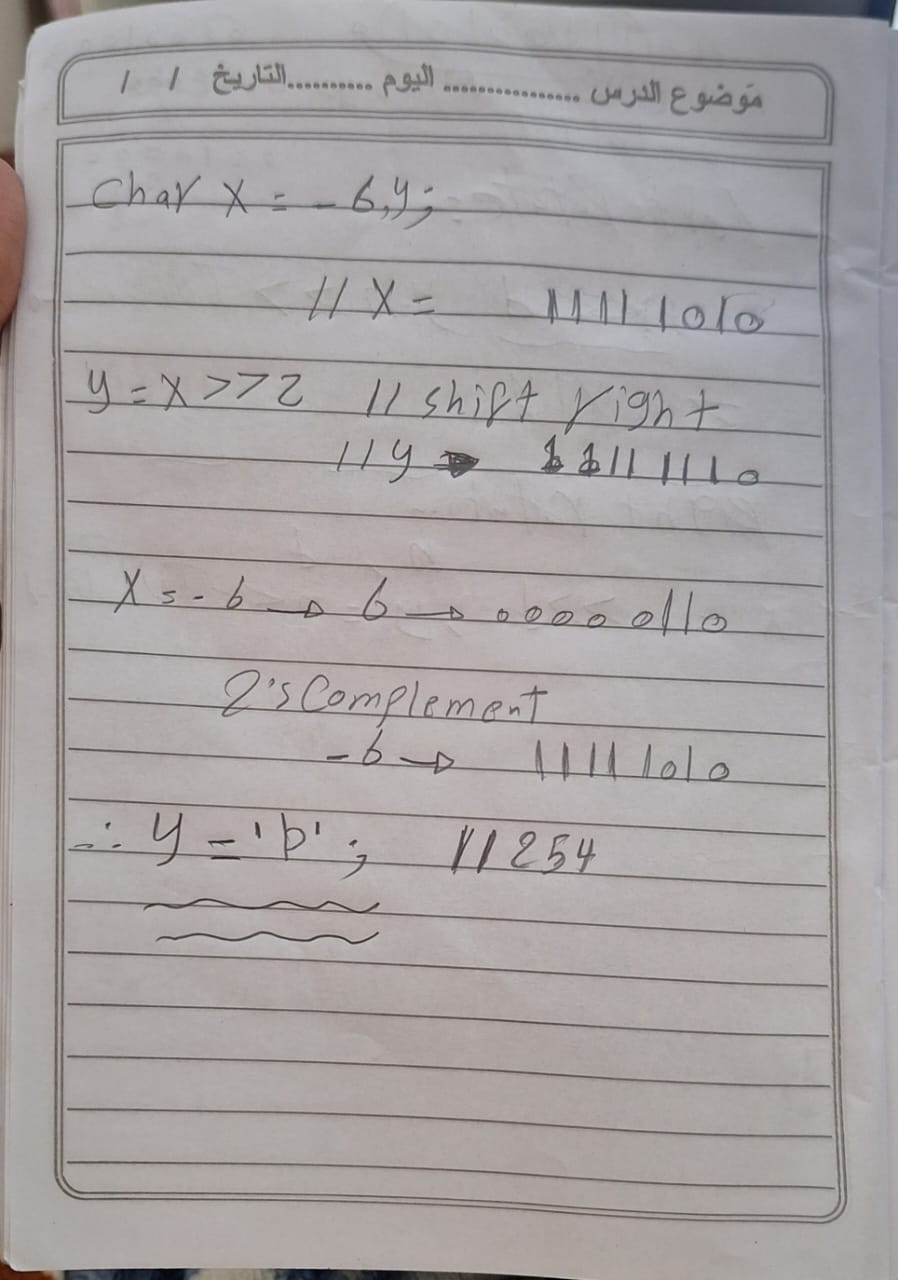 موضوع الدرس ................ اليوم .......... التاريخ / /
Char X = -6,y;
// X = 11111010
y = X >> 2 // shift right
// y → 11111110
X = -6 → 6 → 00000110
2's Complement
-6 → 11111010
∴ y = 'þ' ; // 254